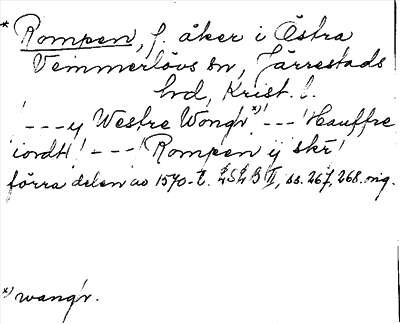 * Rompen, f. åker i Östra
Vemmerlövs sn, Järrestads
hd, Krist. l.
'---y Westre Wongr*)'---'Hauffre
iordt'---'Rompen ij skr'
förra delen av 1570-t. LSLB II, ss. 267, 268. mg.
*) wangr.